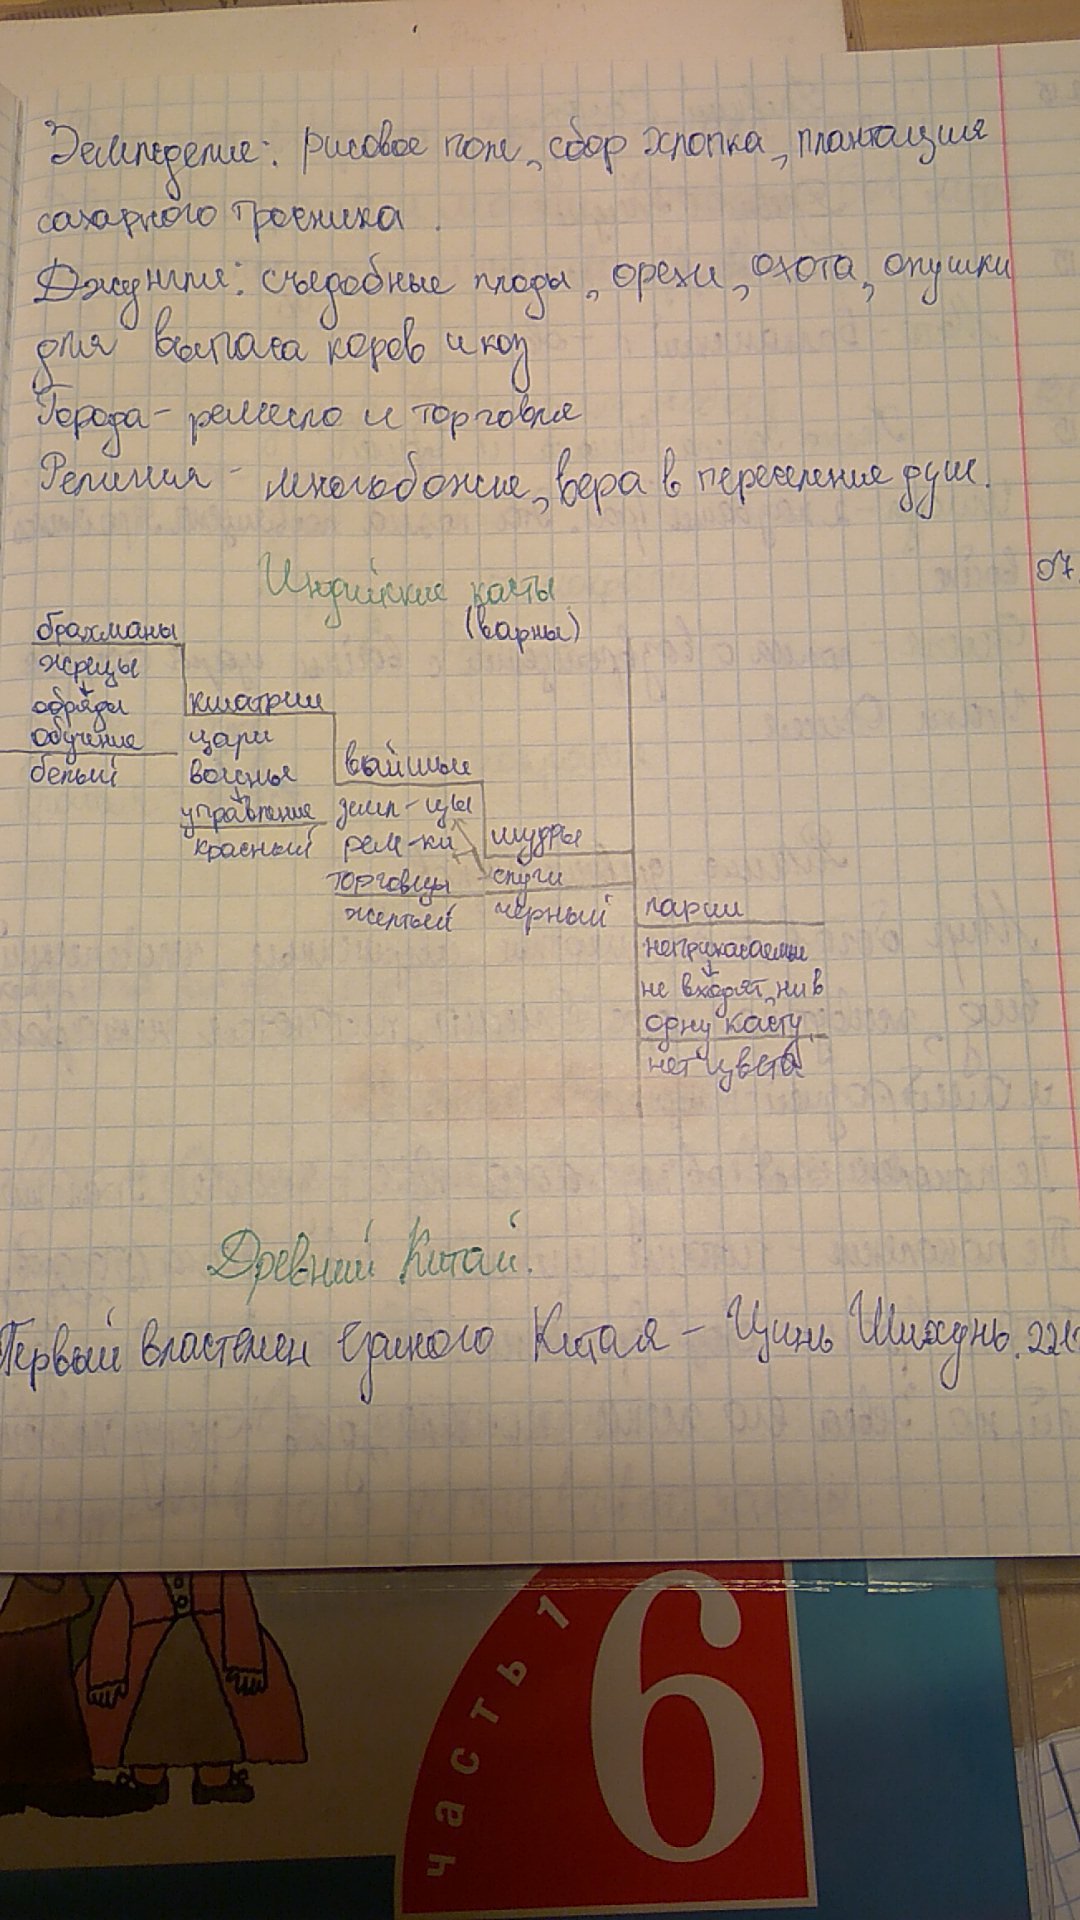 Земледелие: рисовое поле, сбор хлопка, плантация
сахарного тросника.
Джунгли: съедобные плоды, орехи, охота, опушки
для выпаса коров и коз
Города - ремесло и торговля
Религия - многобожие, вера в переселение душ.
Индийские касты
(варны)
07
брахманы
жрецы
обряды
обучение
белый
кшатрии
цари
воины
управление
красный
вайшьи
земл-цы
рем-ки
торговцы
желтый
шудры
слуги
чёрный
парии
неприкасаемые
не входят ни в
одну касту
нет цвета
Древний Китай.
Первый властелин единого Китая - Цинь Шихунь. 221
часть 1
6